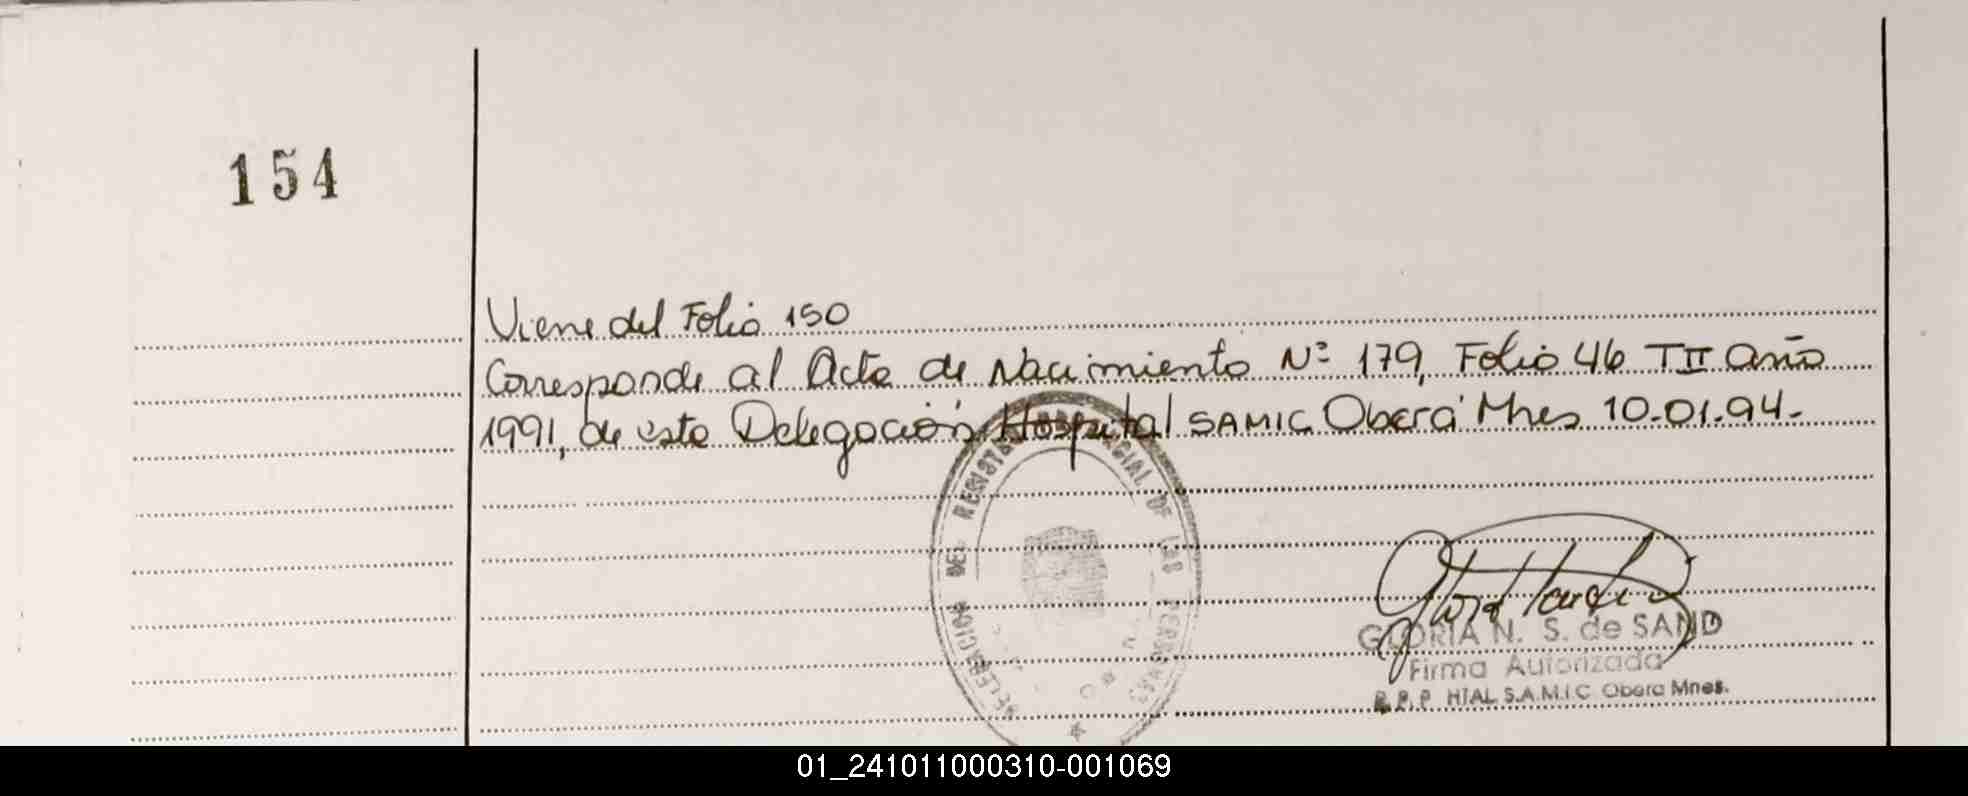 154
Viene del Folio 150
Corresponde al Acta de Nacimiento Nº 179, Folio 46 T II año
1991, de esta Delegación Hospital SAMIC Oberá Mnes 10-01-94-
DELEGACION DEL REGISTRO PROVINCIAL DE LAS PERSONAS
GLORIA N. S. de SAND
Firma Autorizada
R.P.P HTAL S.A.M.I.C Obera Mnes.
01_241011000310-001069